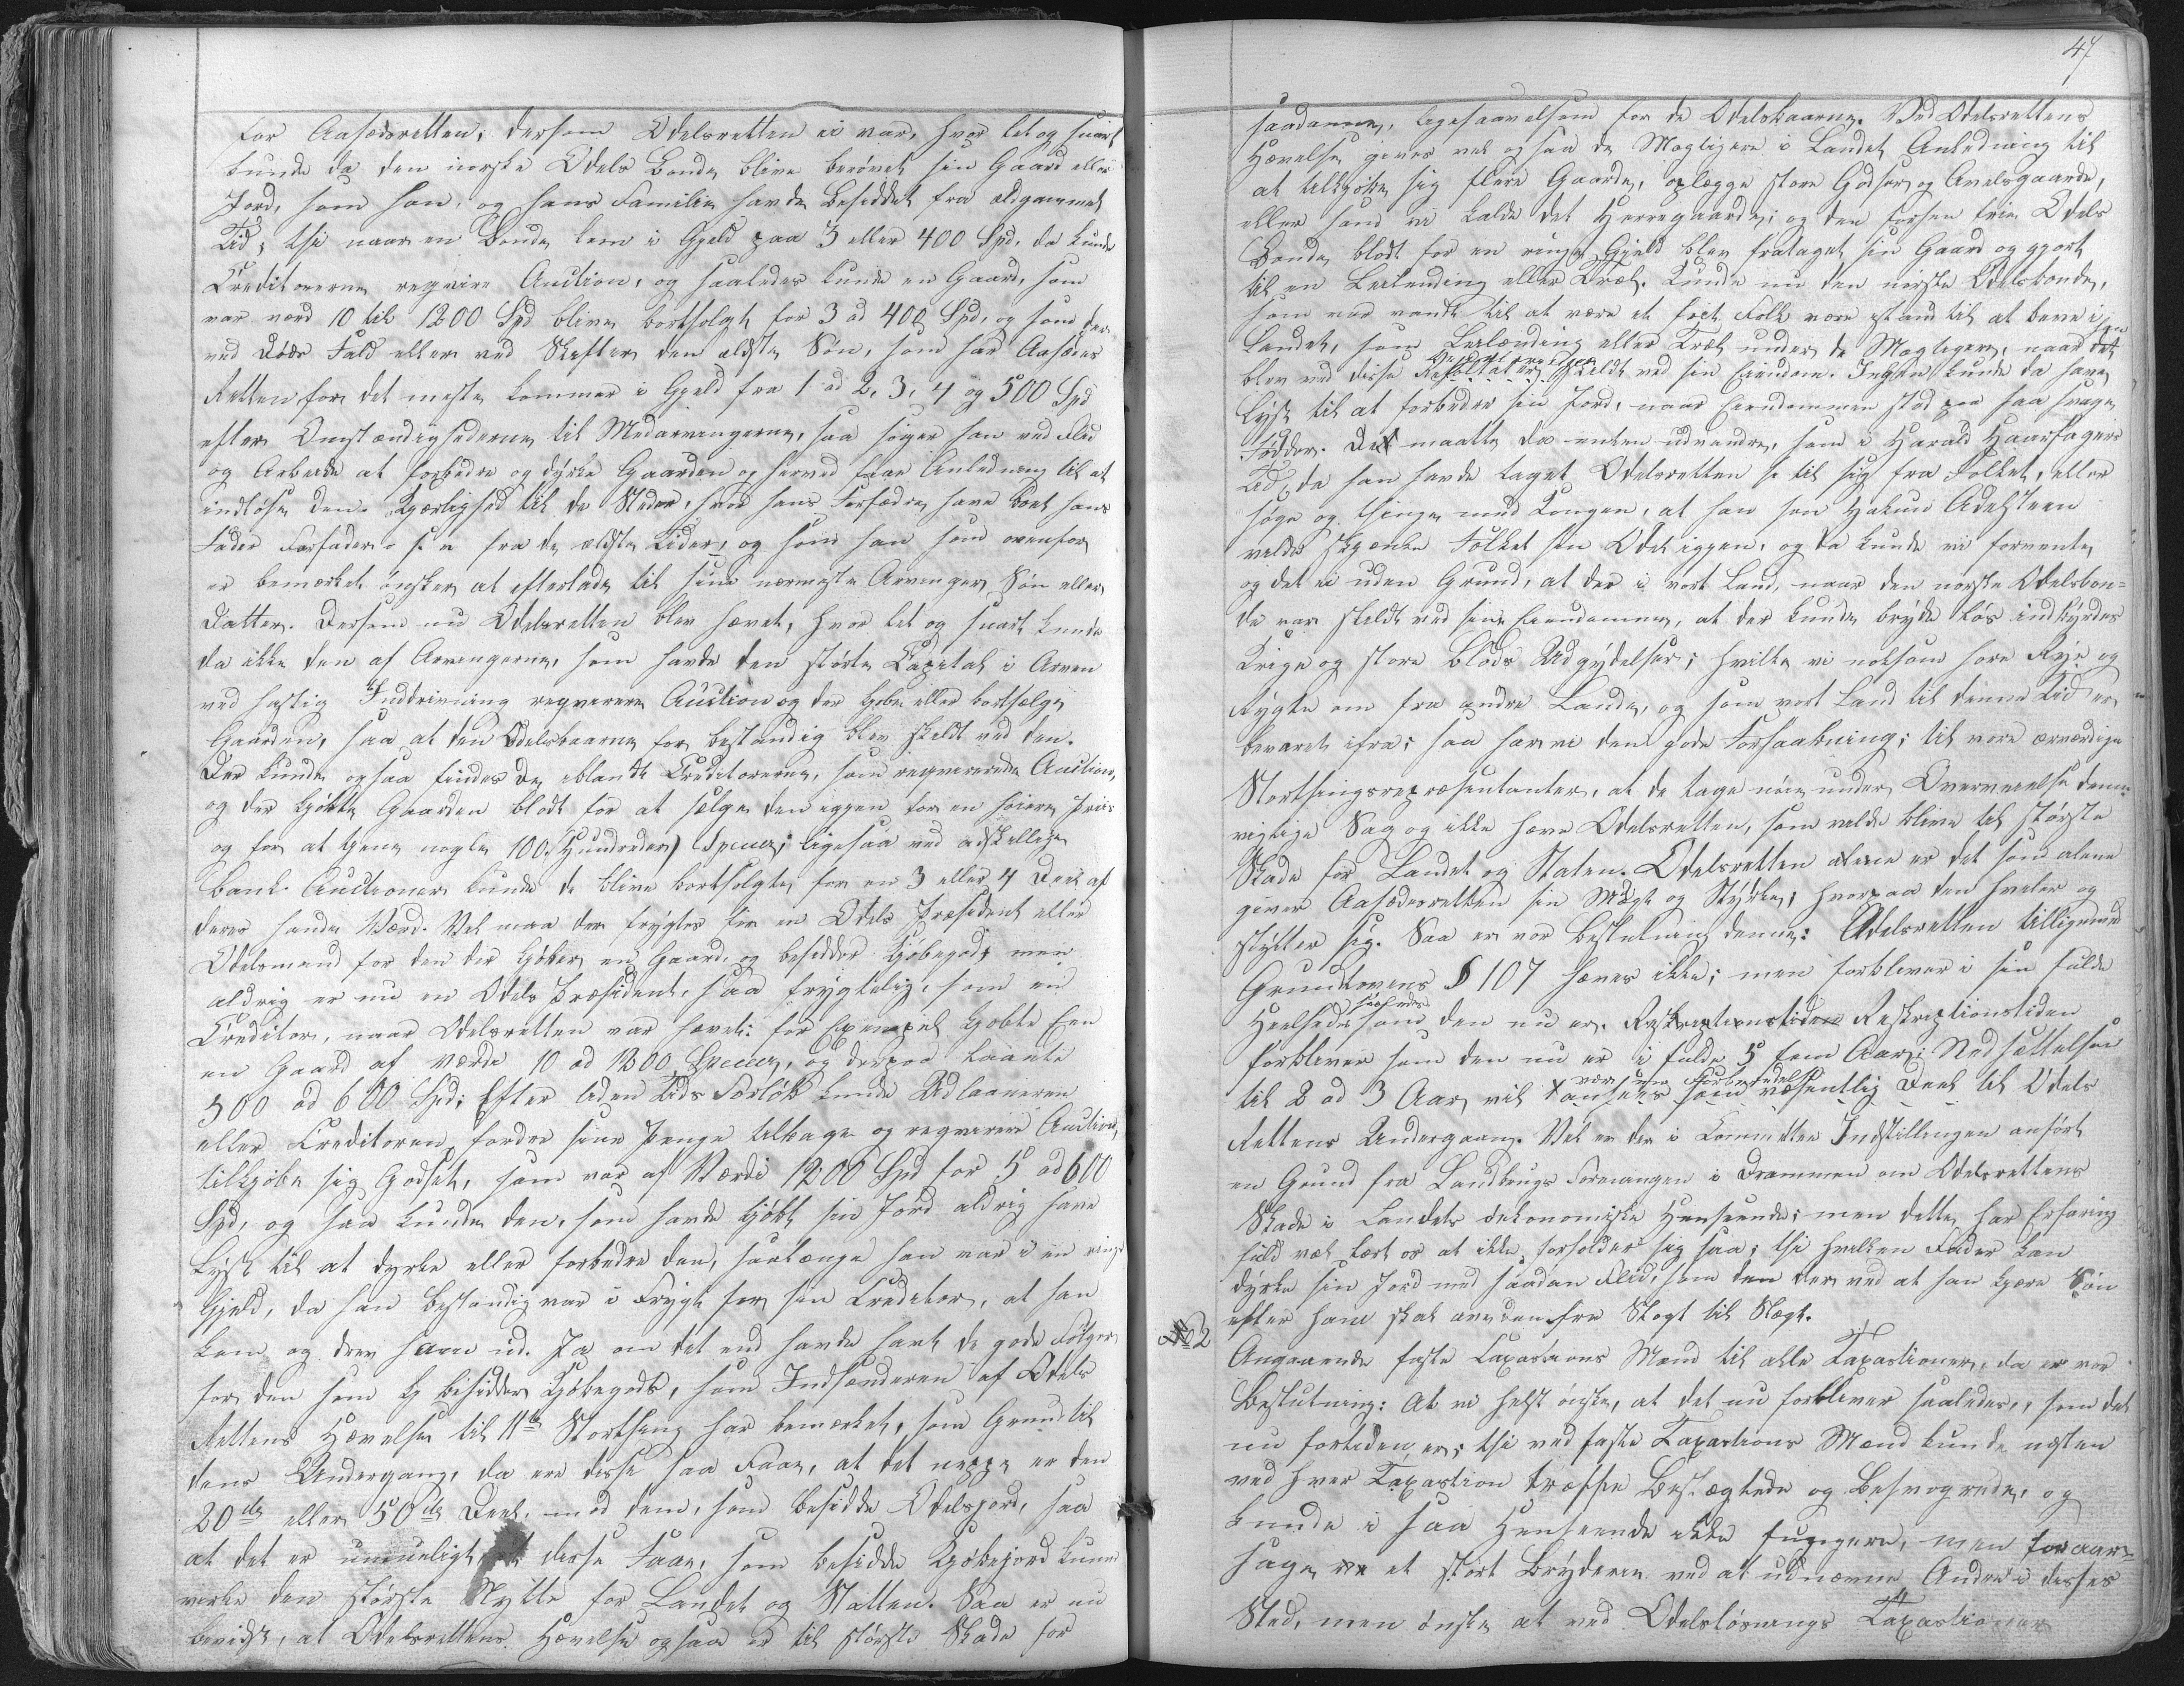 for Aasædesretten, dersom Odelsretten ei var, hvor let og snart
kunde da den norske Odels Bonde blive berøvet sin Gaard eller
Jord, som han, og hans Familie havde besiddet fra eldgammel
Tid; thi naar en Bonde kom i Gjeld paa 3 eller 400 Spd, da kunde
Creditorerne reqvire Auction, og saaledes kunde en Gaard, som
var værd 10 til 1200 Spd blive bortsolgt for 3 ad 400 Spd, og som der
ved Døds Fald eller ved Skifter den ældste Søn, som har Aasædes
Retten for det meste kommer i Gjeld fra 1 ad 2, 3, 4 og 500 Spd
efter Omstændighederne til Medarvingerne, saa søger han ved Flid
og Arbeide at forbedre og dyrke Gaarden og herved faar Anledning til at
indløse den. Kjærlighed til de Steder, hvor hans Forfædre have boet hans
Fader Forfader o: s: v: fra de ældste Tider, og som han som ovenfor
er bemærket ønsker at efterlade til sine nærmeste Arvinger Søn eller
Datter. Dersom nu Odelsretten blev hævet, hvor let og snart kunde
da ikke den af Arvingerne, som havde den største Capital i Arven
ved hastig Inddrivning reqverere Auction og der Kjøbe eller bortsælge
Gaarden, saa at den Odelsbaarne for bestandig blev skildt ved den.
Der kunde ogsaa findes de iblandt Creditorerne, som reqvererede Auction,
og der kjøbte Gaarden blodt for at sælge den igjen for en høiere Priis
og for at tjene nogle 100 (Hundreder) Specier; ligesaa ved adskillige
Bank Auctioner kunde de blive bortsolgte for en 3 eller 4 Deel af
deres sande Værd. Vel maa der frygtes for en Odels Præsident eller
Odelsmand for den der kjøber en Gaard, og besidder Kjøbegods men
aldrig er nu en Odels Præsident, saa frygtelig, som en
Creditor, naar Odelsretten var hævet: for Exempel Kjøbte Een
en Gaard af værdi 10 ad 1200 Specier, og derpaa laante
500 ad 600 Spd; Efter liden Tids Forløb kunde Udlaaneren
eller Creditoren fordre sine Penge tilbage og reqverere Auction,
tilkjøbe sig Godset, som var af Værdi 1200 Spd for 5 ad 600
Spd, og saa kunde den, som havde kjøbt sin Jord aldrig have
Lyst til at dyrke eller forbedre den, saalænge han var i en ringe
Gjeld, da han bestandig var i Frygt for sin Creditor, at han
kom og drev ham ud. Ja om det end havde havt de gode Følger
for den som besidder Kjøbegods, som Indsenderen af Odels
Rettens Hævelse til 11te Storthing har bemærket, som Grund til
dens Undergang, da ere disse saa Faae, at det neppe er den
20de eller 50de Deel, mod dem, som besidde Odelsjord, saa
at det er umueligt, at disse Faae, som besidde Kjøbejord kunne
virke den største Nytte for Landet og Statten. Saa er nu
beviist, at Odelsrettens Hævelse ogsaa er til største Skade for
47
saadanne, ligesaavelsom for de Odelsbaarne. Ved Odelsrettens
Hævelse gives vel ogsaa de Mægtigere i Landet Anledning til
at tilkjøbe sig flere Gaarde, oplægge store Godser og Avelsgaarde,
eller som vi kalde det Herregaarde; og den forhen frie Odels
Bonde blodt for en ringe Gjeld blev frataget sin Gaard og gjort
til en Leilending eller Træl. Kunde nu den norske Odelsbonde,
som var vandt til at være et friet Folk være istand til at beve i
Landet, som Leilænding eller Træl under de Mægtigere, naar
blev ved disse Resultater skildt ved sin Eiendom. Ingen kunde da have
Lyst til at forbedre sin Jord, naar Eiendommen stod paa saa svage
Fødder. De maatte da enten udvandre, som i Harald Haarfagers
Tid, da han havde taget Odelsretten til sig fra Folket, eller
søge og thinge med Kongen, at han som Hakun Adelsteen
vilde skjænke Folket sin Odel igjen, og da kunde vi forvente
og det ei uden Grund, at der i vort Land, naar den norske Odelsbon=
de var skildt ved sine Eiendomme, at der kunde bryde løs indbyrdes
Krige og store Blods Udgydelser; hvilke vi noksom høre Rye og
Rygte om fra andre Lande, og som vort Land til denne Tid er
bevaret ifra; saa har vi den gode Forhaabning; til vore ærværdige
Storthingsrepræsentanter, at de tage nøie under Overveielse denne
vigtige Sag og ikke hæve Odelsretten, som vilde blive til største
Skade for Landet og Staten. Odelsretten alene er det som alene
giver Aasædesretten sin Magt og Stytte, hvorpaa den hviler og
støtter sig. Saa er vor Beslutning denne: Odelsretten tilligemed
Grundlovens § 107 hæves ikke; men forbliver i sin fulde
Heelhed som den nu er. Reskreptionstiden Reskreptionstiden
forbliver som den nu er i fulde 5 fem Aar; Nedsættelsen
til 2 ad 3 Aar vil ansees som væsentlig Deel til Odels
Rettens Undergang. Vel er der i Committee Indstillingen anført
en Grund fra Landbrugs Foreningen i Drammen om Odelsrettens
Skade i Landets oekonomiske Henseende; men dette har Erfaring
fuld vel lært os at ikke forholder sig saa; thi hvilken Fader kan
dyrke sin Jord med saadan Flid, som den der ved at han kjære Søn
efter ham skal arve den fra Slægt til Slægt.
No 2
Angaaende faste Taxasions Mænd til alle Taxastioner, da er vor
Beslutning: At vi helst ønske, at det nu forbliver saaledes, som det
nu fortiden er; thi ved faste Taxastions Mænd kunde næsten
ved hver Taxastion træffe Beslægtede og Besvogrede, og
kunde i saa Henseende ikke fungere, men foraar=
sage et stort Bryderie ved at udnævne Andre i disses
Sted, men ønske at ved Odelsløsnings Taxastioner